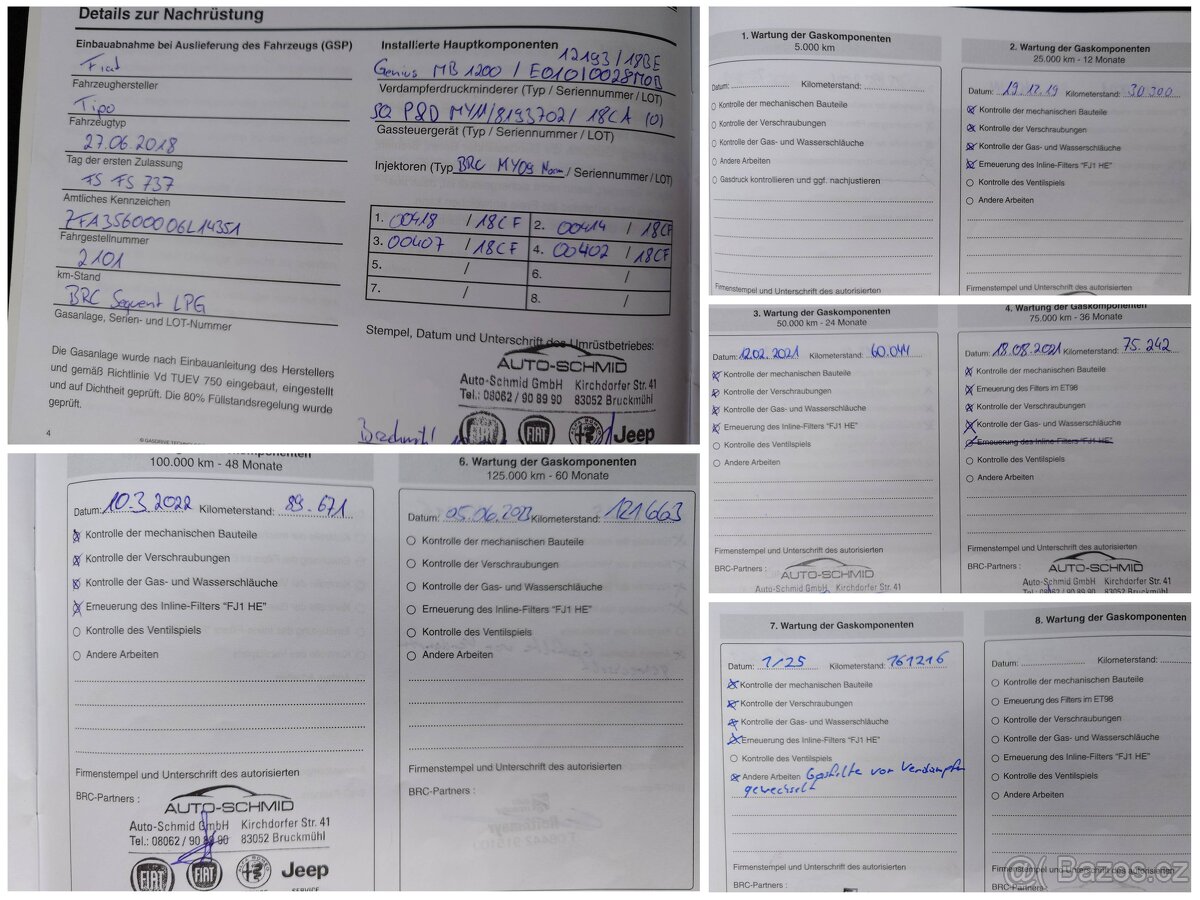 Details zur Nachrüstung
Einbauabnahme bei Auslieferung des Fahrzeugs (GSP)
Fiat
Fahrzeughersteller
Tipo
Fahrzeugtyp
27.06.2018
Tag der ersten Zulassung
FS FS 737
Amtliches Kennzeichen
ZFA35600006L14351
Fahrgestellnummer
2101
km-Stand
BRC Sequent LPG
Gasanlage, Serien- und LOT-Nummer
Die Gasanlage wurde nach Einbauanleitung des Herstellers
und gemäß Richtlinie Vd TUEV 750 eingebaut, eingestellt
und auf Dichtheit geprüft. Die 80% Füllstandsregelung wurde
geprüft.
4
Installierte Hauptkomponenten
12193/18BE
Genius MB 1200 / E01010028MOB
Verdampferdruckminderer (Typ / Seriennummer / LOT)
SQ P&D MY11/8193702/ 18CA (0)
Gassteuergerät (Typ / Seriennummer / LOT)
Injektoren (Typ BRC MY09 / Seriennummer / LOT)
1. 00418 / 18CF 2. 00414 / 18CF
3. 00407 / 18CF 4. 00402 / 18CF
5. / 6. /
7. / 8. /
Stempel, Datum und Unterschrift des Umrüstbetriebes:
AUTO-SCHMID
Auto-Schmid GmbH Kirchdorfer Str. 41
Tel.: 08062 / 90 89 90 83052 Bruckmühl
FIAT
Jeep
1. Wartung der Gaskomponenten
5.000 km
Datum: Kilometerstand:
Kontrolle der mechanischen Bauteile
Kontrolle der Verschraubungen
Kontrolle der Gas- und Wasserschläuche
Andere Arbeiten
Gasdruck kontrollieren und ggf. nachjustieren
Firmenstempel und Unterschrift des autorisierten
2. Wartung der Gaskomponenten
25.000 km - 12 Monate
Datum: 19.12.19 Kilometerstand: 30300
Kontrolle der mechanischen Bauteile
Kontrolle der Verschraubungen
Kontrolle der Gas- und Wasserschläuche
Erneuerung des Inline-Filters "FJ1 HE"
Kontrolle des Ventilspiels
Andere Arbeiten
Firmenstempel und Unterschrift des autorisierten
3. Wartung der Gaskomponenten
50.000 km - 24 Monate
Datum: 12.02.2021 Kilometerstand: 60.044
Kontrolle der mechanischen Bauteile
Kontrolle der Verschraubungen
Kontrolle der Gas- und Wasserschläuche
Erneuerung des Inline-Filters "FJ1 HE"
Kontrolle des Ventilspiels
Andere Arbeiten
Firmenstempel und Unterschrift des autorisierten
BRC-Partners :
AUTO-SCHMID
Auto-Schmid GmbH Kirchdorfer Str. 41
4. Wartung der Gaskomponenten
75.000 km - 36 Monate
Datum: 18.08.2021 Kilometerstand: 75.242
Kontrolle der mechanischen Bauteile
Erneuerung des Filters im ET98
Kontrolle der Verschraubungen
Kontrolle der Gas- und Wasserschläuche
Erneuerung des Inline-Filters "FJ1 HE"
Kontrolle des Ventilspiels
Andere Arbeiten
Firmenstempel und Unterschrift des autorisierten
BRC-Partners :
AUTO-SCHMID
Auto-Schmid GmbH Kirchdorfer Str. 41
100.000 km - 48 Monate
Datum: 10.3.2022 Kilometerstand: 89.671
Kontrolle der mechanischen Bauteile
Kontrolle der Verschraubungen
Kontrolle der Gas- und Wasserschläuche
Erneuerung des Inline-Filters "FJ1 HE"
Kontrolle des Ventilspiels
Andere Arbeiten
Firmenstempel und Unterschrift des autorisierten
BRC-Partners :
AUTO-SCHMID
Auto-Schmid GmbH Kirchdorfer Str. 41
Tel.: 08062 / 90 89 90 83052 Bruckmühl
FIAT
FIAT
Jeep
6. Wartung der Gaskomponenten
125.000 km - 60 Monate
Datum: 05.06.2023 Kilometerstand: 121663
Kontrolle der mechanischen Bauteile
Kontrolle der Verschraubungen
Kontrolle der Gas- und Wasserschläuche
Erneuerung des Inline-Filters "FJ1 HE"
Kontrolle des Ventilspiels
Andere Arbeiten
Firmenstempel und Unterschrift des autorisierten
BRC-Partners :
7. Wartung der Gaskomponenten
Datum: 1/25 Kilometerstand: 161216
Kontrolle der mechanischen Bauteile
Kontrolle der Verschraubungen
Kontrolle der Gas- und Wasserschläuche
Erneuerung des Inline-Filters "FJ1 HE"
Kontrolle des Ventilspiels
Andere Arbeiten Gasfilte vor Verdampfer
gewechselt
Firmenstempel und Unterschrift des autorisierten
BRC-Partners :
8. Wartung der Gaskomponenten
Datum: Kilometerstand:
Kontrolle der mechanischen Bauteile
Erneuerung des Filters im ET98
Kontrolle der Verschraubungen
Kontrolle der Gas- und Wasserschläuche
Erneuerung des Inline-Filters "FJ1 HE"
Kontrolle des Ventilspiels
Andere Arbeiten
Firmenstempel und Unterschrift des autorisierten
BRC-Partners :
Bazos.cz